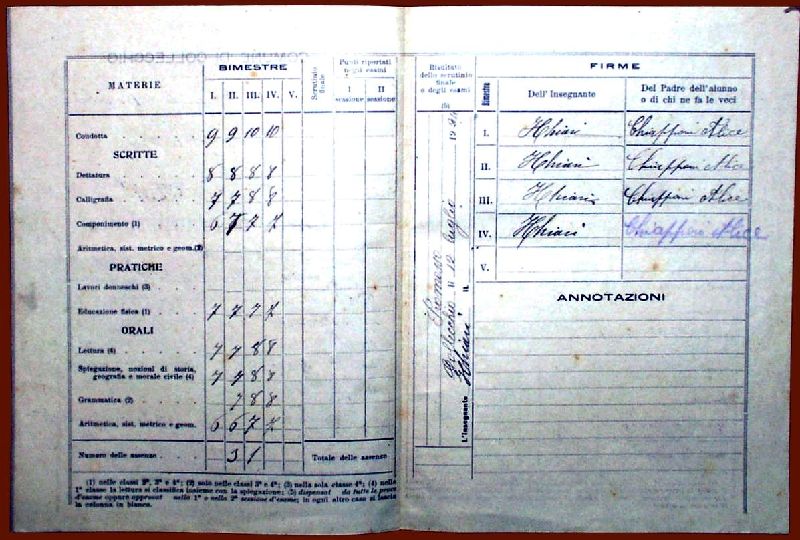 BIMESTRE
MATERIE
I. II. III. IV. V.
Scrutinio finale
Punti riportati negli esami
I sessione
II sessione
Condotta 9 9 10 10
SCRITTE
Dettatura 8 8 8 8
Calligrafia 7 7 8 8
Componimento (1) 6 7 7 7
Aritmetica, sist. metrico e geom.(2)
PRATICHE
Lavori donneschi (3)
Educazione fisica (1) 7 7 7 7
ORALI
Lettura (4) 7 7 8 8
Spiegazione, nozioni di storia,
geografia e morale civile (4) 7 7 8 8
Grammatica (2) 7 8 8
Aritmetica, sist. metrico e geom. 6 6 7 7
Numero delle assenze 3 1
Totale delle assenze
(1) nelle classi 2ª, 3ª e 4ª; (2) solo nelle classi 3ª e 4ª; (3) nella sola classe 4ª; (4) nella
1ª classe la lettura si classifica insieme con la spiegazione; (5) dispensat da tutte le prove
d'esame oppure approvat nella 1ª e nella 2ª sessione d'esame; in ogni altro caso si lascia
la colonna in bianco.
Risultato
dello scrutinio
finale
o degli esami
(5)
Promosso
Collecchio li 12 luglio 19
L'Insegnante
Ghiari
FIRME
Bimestre
Dell' Insegnante
Del Padre dell'alunno
o di chi ne fa le veci
I. Ghiari Chiapponi Alice
II. Ghiari Chiapponi Alice
III. Ghiari Chiapponi Alice
IV. Ghiari Chiapponi Alice
V.
ANNOTAZIONI